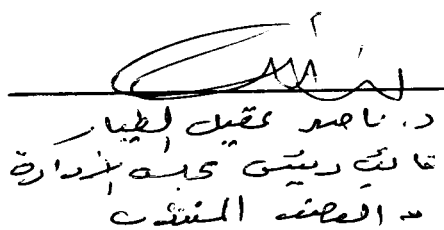 د. ناصر عقيل الطيار
نائب رئيس مجلس الإدارة
و العضو المنتدب